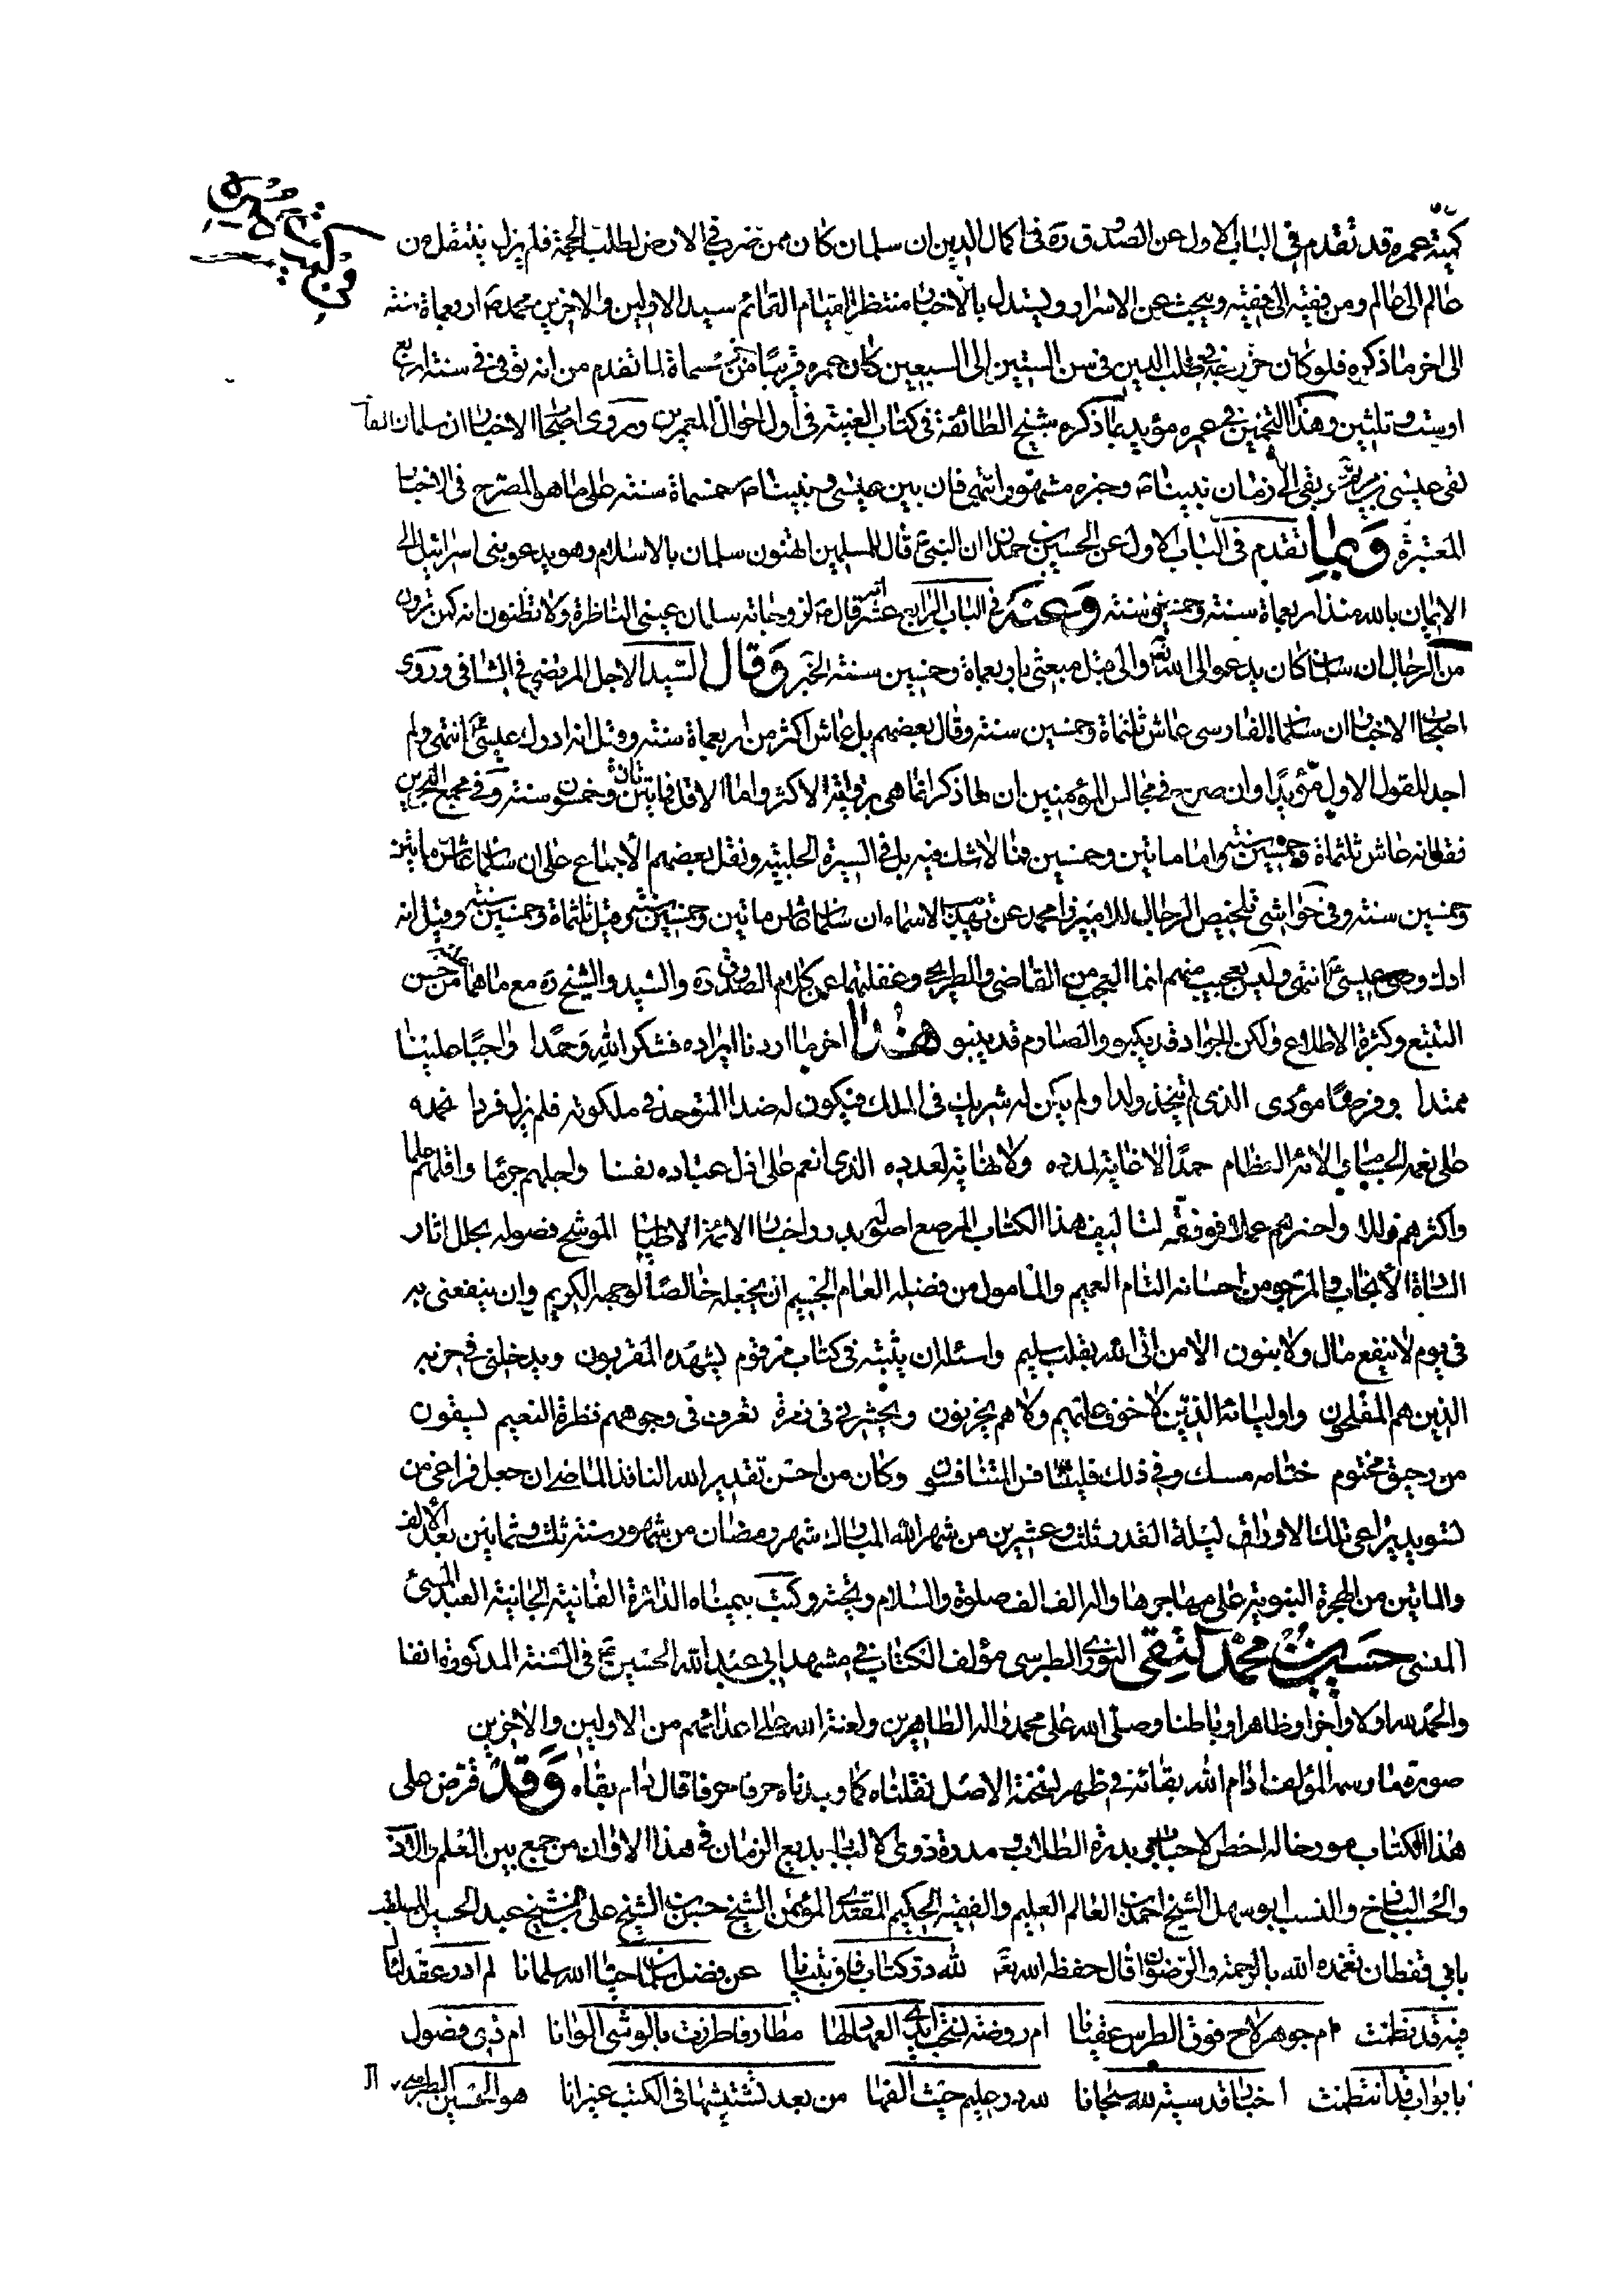 في كمية عمره
كميّة عمره قد تقدم في الباب الاول عن الصدوق ره في اكمال الدين ان سلمان كان ممن ضرب في الارض لطلب الحجة فلم يزل ينتقل من
عالم الى عالم ومن فقيه الى فقيه ويبحث عن الاسرار ويستدل بالاخبار منتظرا لقيام القائم سيد الاولين والاخرين محمد ص اربعماة سنة
الى اخر ما ذكره فلو كان حين رغبة في طلب الدين في سن الستين الى السبعين كان عمره قريبا من خمسماة لما تقدم من انه توفى في سنة اربع
او ست وثلثين وهذا التخمين في عمره مؤيد بما ذكره شيخ الطائفة في كتاب الغيبة في أول احوال المعمرين وروى اصحاب الاخبار ان سلمان الفا
لقى عيسى بن مريم وبقى الى زمان نبينا ص وخبره مشهور انتهى فان بين عيسى ونبينا ص خمسماة سنة على ما هو المصرح في الاخبار
المعتبرة وبما تقدم في الباب الاول عن الحسين بن حمدان ان النبي ص قال للمسلمين اتظنون سلمان بالاسلام وهو يدعو بني اسرائيل الى
الايمان بالله منذ اربعماة سنة وخمسين سنة وعنه في الباب الرابع عشر انه قال ص لزوجاته سلمان عيني الناظرة ولا تظنون انه كمن ترون
من الرجال ان سلمان كان يدعو الى الله تعالى والى قبل مبعثي باربعماة وخمسين سنة الخبر وقال السيد الاجل المرتضى في الشافى وروى
اصحاب الاخبار ان سلمان الفارسى عاش ثلثماة وخمسين سنة وقال بعضهم بل عاش اكثر من اربعماة سنة وقيل انه ادرك عيسى ع انتهى ولم
اجد للقول الاول مؤيدا وان صرح في مجالس المؤمنين ان ما ذكر انما هي برواية الاكثر واما الاقل فمايتان وخمسون سنة وفي مجمع البحرين
فقال انه عاش ثلثماة وخمسين سنة واما مايتين وخمسين فمما لا شك فيه بل في السيرة الحلبية ونقل بعضهم الاجماع على ان سلمان عاش مايتين
وخمسين سنة وفي حواشى تلخيص الرجال للاميرزا محمد عن تهذيب الاسماء ان سلمان عاش مايتين وخمسين سنة وقيل ثلثماة وخمسين سنة وقيل انه
ادرك وصى عيسى ع انتهى وليس بعجيب منهم انما العجب من القاضى والطريحى وغفلتهما عن كلام الصدوق ره والسيد والشيخ ره مع ما هما عليه من حسن
التتبع وكثرة الاطلاع ولكن الجواد قد يكبو والصارم قد ينبو هذا اخر ما اردنا ايراده فشكر الله وحمدا واجبا علينا
ممتدا وفرضا مؤدى الذى لم يتخذ ولدا ولم يكن له شريك في الملك فيكون له ضدا المتوحد في ملكوته فلم يزل فردا نحمده
على نعمه الجسام والائه العظام حمدا لا غاية لمدده ولا نهاية لعدده الذى انعم على اذل عباده نفسا واجلهم جرما واقلهم علما
واكثرهم زللا واخسرهم عملا فوفقه لتاليف هذا الكتاب المرصع اصوله بدرر اخبار الائمة الاطياب الموشح فصوله بحلل اثار
السادة الأنجاب والمرجو من احسانه التام العميم والمامول من فضله العام الجسيم ان يجعله خالصا لوجهه الكريم وان ينفعنى به
في يوم لا ينفع مال ولا بنون الا من اتى الله بقلب سليم واسئله ان يثبته في كتاب مرقوم يشهده المقربون ويدخلنى في حزبه
الذين هم المفلحون واوليائه الذين لا خوف عليهم ولا هم يحزنون ويحشرنى في زمرة تعرف في وجوههم نظرة النعيم يسقون
من رحيق مختوم ختامه مسك وفي ذلك فليتنافس المتنافسون وكان من احسن تقدير الله النافذ الماضى ان جعل فراغى من
تسويد تلك الاوراق ليلة القدر ثلث وعشرين من شهر الله المبارك شهر رمضان من شهور سنة ثلث وثمانين بعد الألف
والماتين من الهجرة النبوية على مهاجرها واله الف الف صلوة والسلام وتحية وكتب بيمناه الداثرة الفانية الجانية العبد المسئ
المنسى حسين بن محمد تقى النورى الطبرسى مؤلف الكتاب في مشهد ابي عبد الله الحسين ع في السنة المذكورة انفا
والحمد لله اولا واخرا وظاهرا وباطنا وصلى الله على محمد واله الطاهرين ولعنة الله على اعدائهم من الاولين والاخرين
صورة ما رسمه المؤلف ادام الله بقائه في ظهر نسخة الاصل نقلناه كما وجدناه حرفا حرفا قال دام بقاه وقد قرض على
هذا الكتاب مورخا له اخص الاحباب بدرة الطلاب ومدرة ذوى الالباب بديع الزمان في هذا الاوان من جمع بين العلم
والحسب الباذخ والنسب ابو سهل الشيخ احمد بن العالم العليم والفقيه الحكيم المقتدى المؤتمن الشيخ حسن بن الشيخ على بن الشيخ عبد الحسين الملقب
بابي قفطان تغمده الله بالرحمة والرضوان قال حفظه الله تعالى لله در كتاب فاق تبيانا عن فضل سلمان احيا الله سلمانا لم ادر عقد لئال
فيه قد نظمت ام جوهر لاح فوق الطرس عقيانا ام روضة سحب ايدى العهاد لها مطارفا طرزت بالوشى الوانا ام ذى فصول
بابواب قد انتظمت اخبار قدسية لله سبحانا لله در عليم حيث الفها من بعد تشتيتها في الكتب عنوانا هو الحسين الطبرسى